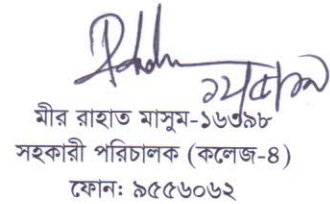 মীর রাহাত মাসুম-১৬৩৯৮
সহকারী পরিচালক (কলেজ-৪)
ফোন: ৯৫৫৬০৬২